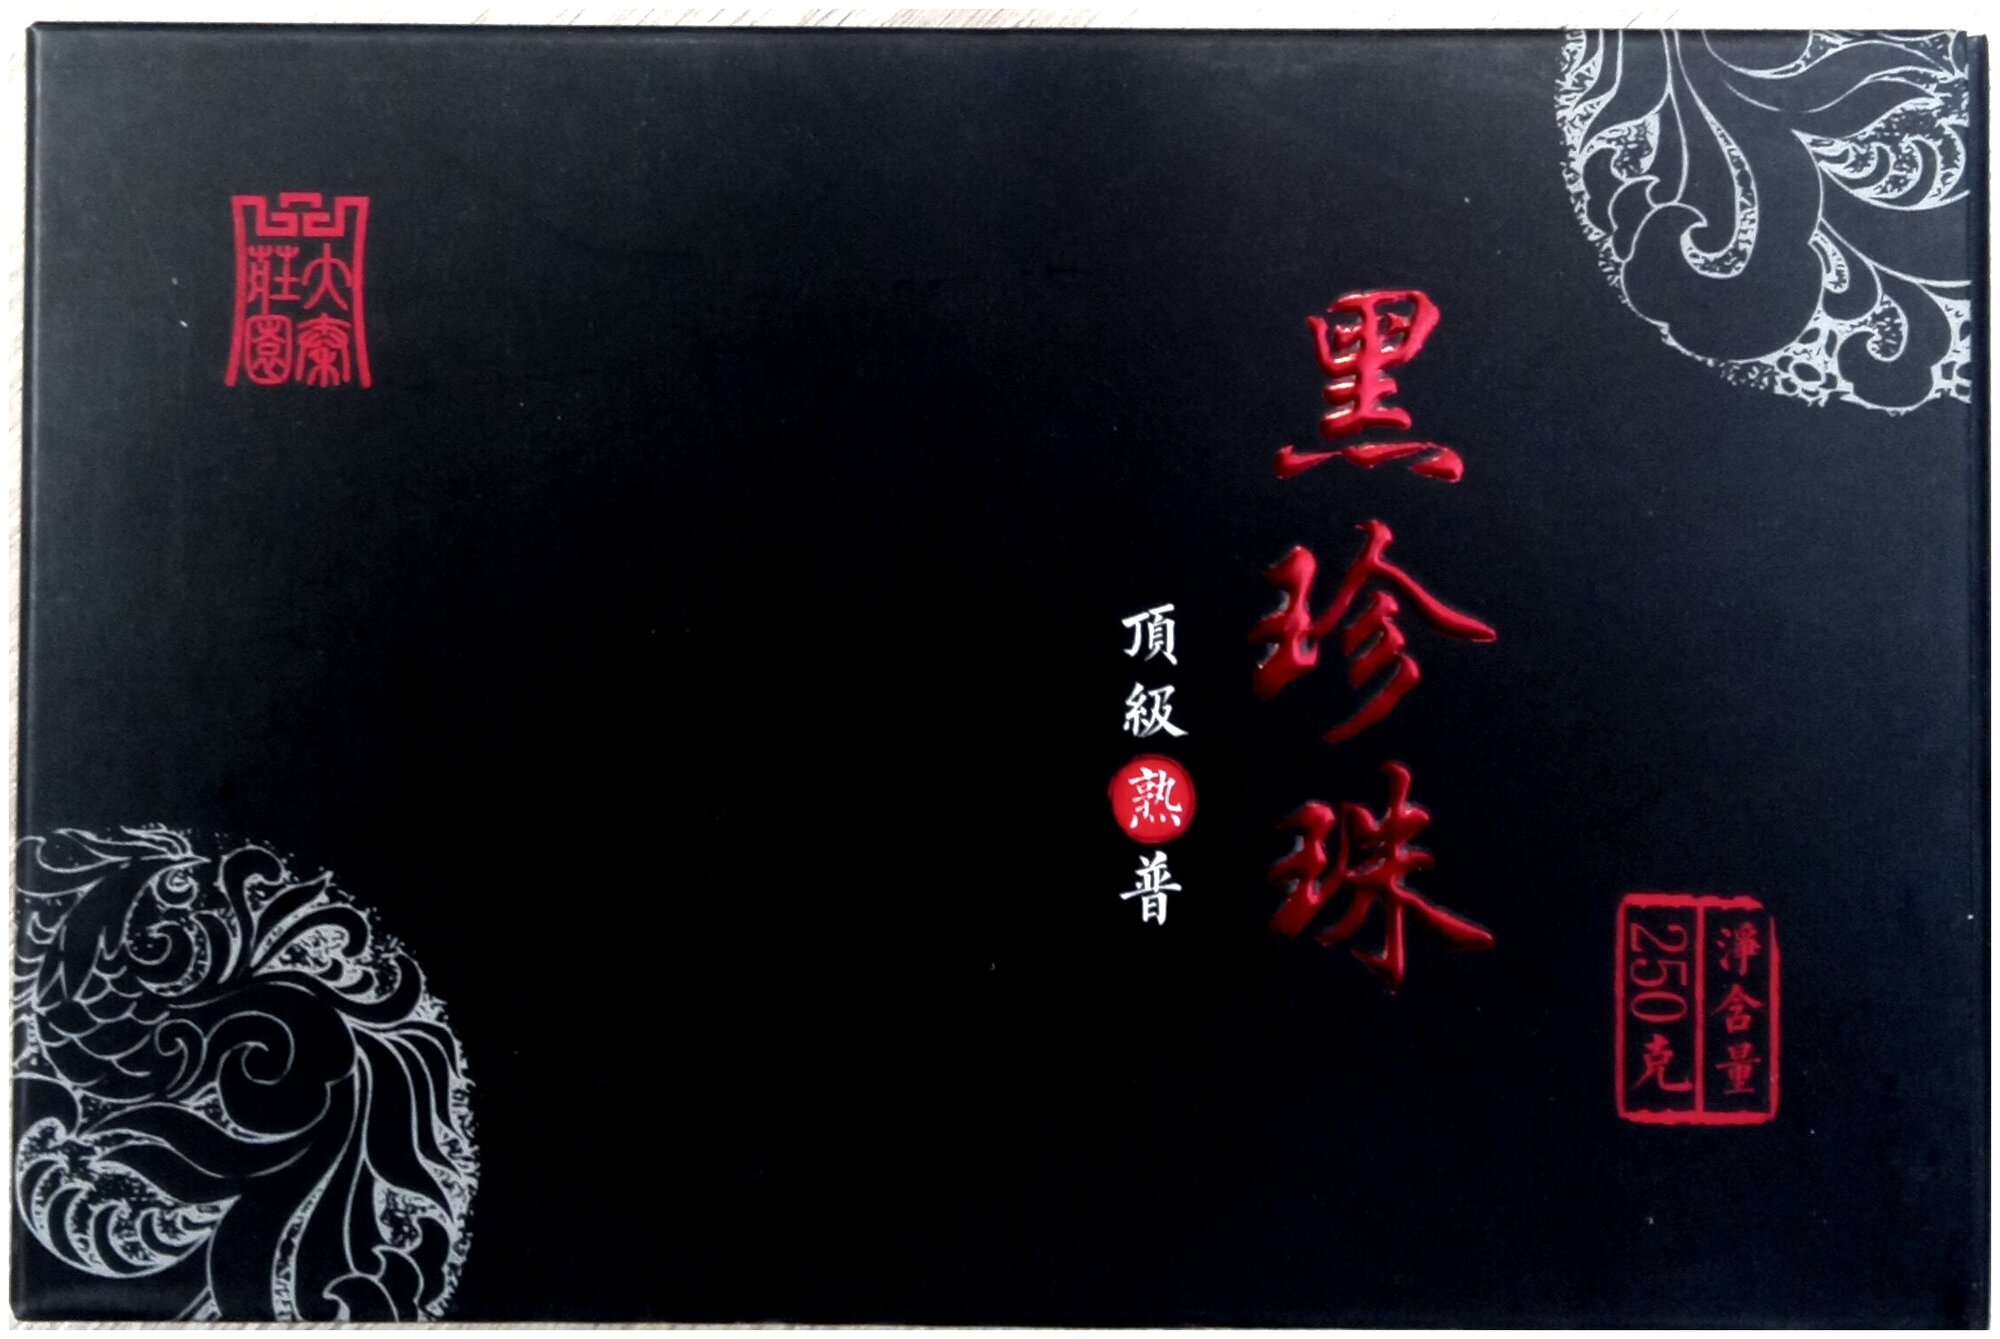 黑珍珠
頂級熟普
淨含量
250克
大秦
莊園